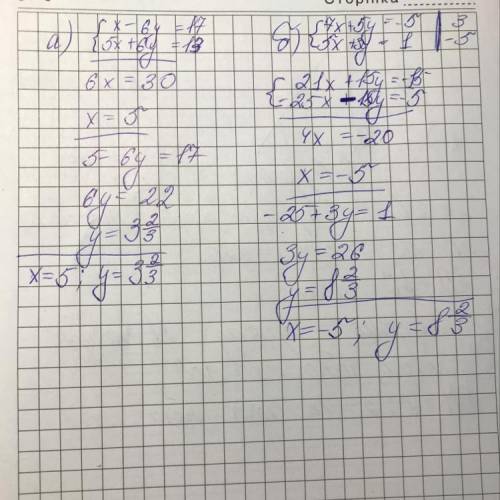 Сторінка
а) { x - 6y = 17
5x + 6y = 13
6x = 30
x = 5
5 - 6y = 17
6y = 22
y = 3 2/3
x = 5; y = 3 2/3
б) { 7x + 5y = -5 | 3
5x + 3y = 1 | -5
{ 21x + 15y = -15
- 25x - 15y = -5
4x = -20
x = -5
-25 + 3y = 1
3y = 26
y = 8 2/3
x = -5; y = 8 2/3